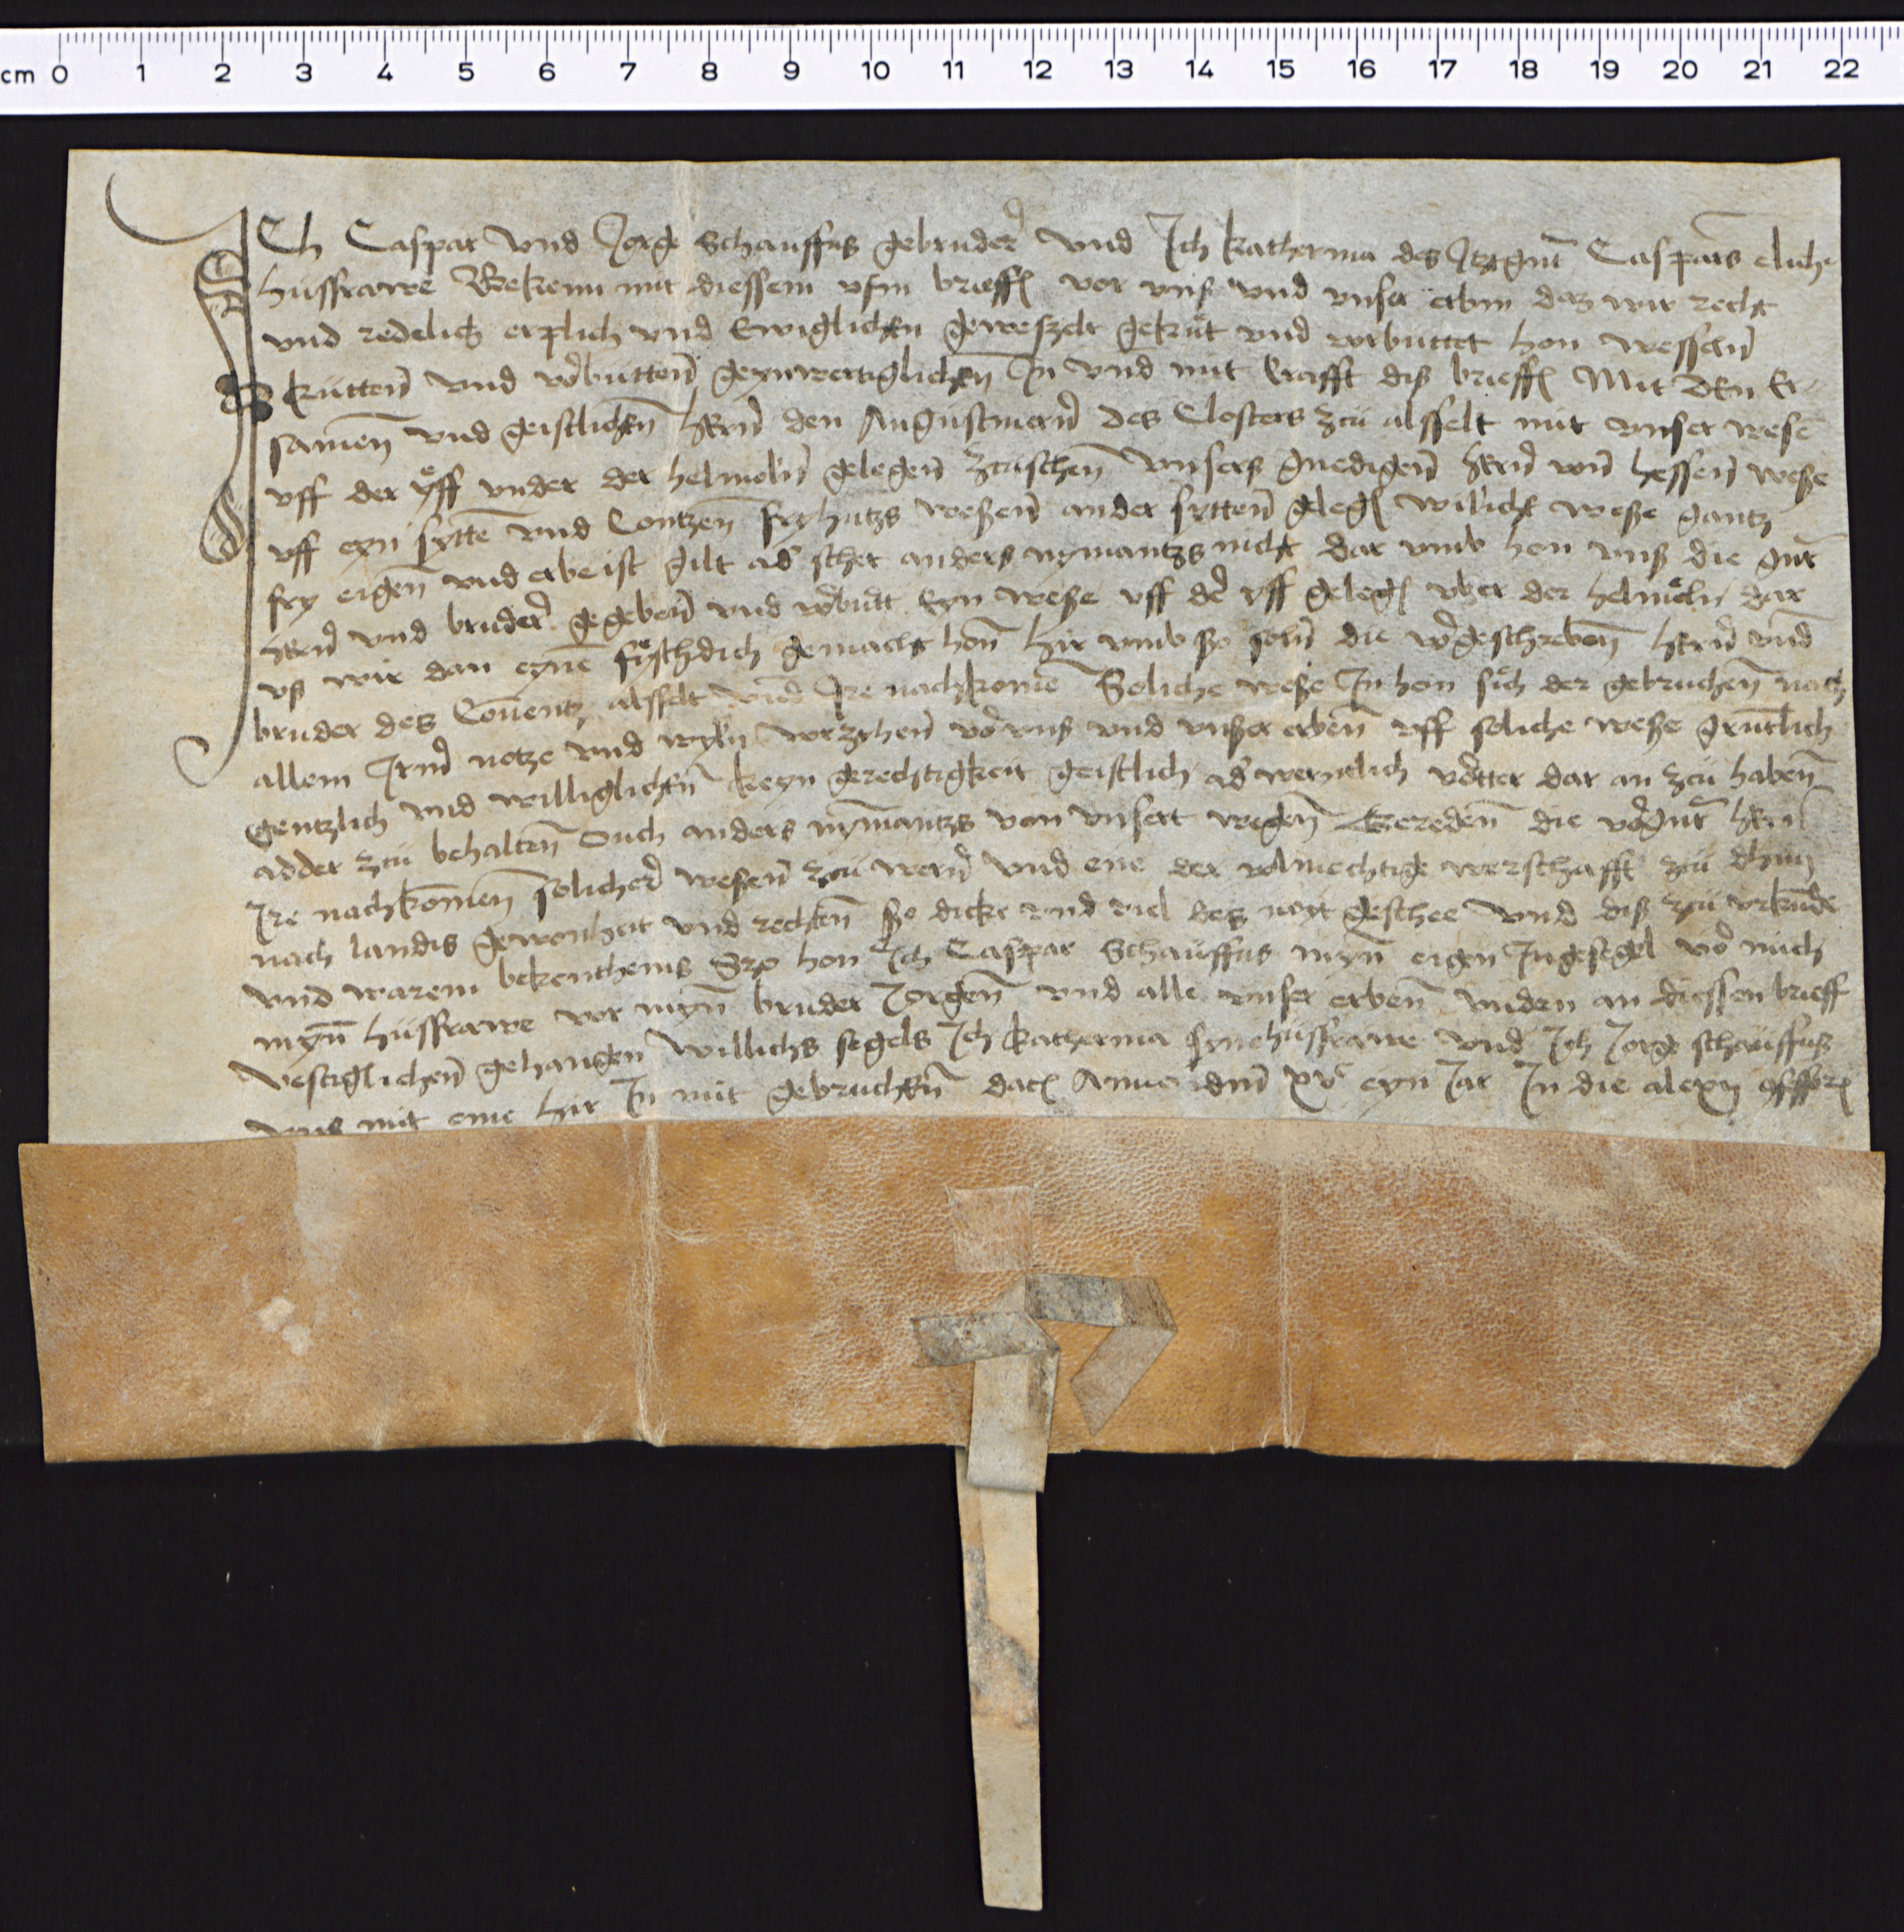 cm 0 1 2 3 4 5 6 7 8 9 10 11 12 13 14 15 16 17 18 19 20 21 22
ICh Caspar vnd Jorge Schauffus gebruder vnd Ich katherina des Jtzgnn Caspars elich
hussfrawe Bekenn mit diessem vfin brieff vor vnß vnd vnser erbin daz wir recht
vnd redelich erplich vnd Ewiglichen geweszelt gekut vnd vorbuttet hon wesseln
kutten vnd vorbutten geynwertiglichen In vnd mit krafft diß brieff Mit den Er-
samen vnd geistlichen hern den Augustinern des Closters zcu alsfelt mit vnser wesen
vff der yff vnder der helmoln gelegen zcuschen vnsers gnedigen hern von hessen weße
vff eyn sytten vnd Contzen fryhutzs weßen ander sytten geleg wilich weße gantz
fry eigen vnd erbe ist gilt ad schet anders nymantzs nicht dar vmb hon vnß die gnt
hern vnd bruder gegeben vnd vorbutt Eyn weße vff der yff geleg vber der helmoln dar
vß wir dan eyne fyschdich gemacht hon hir vmb szo soln die vorgeschreben hern vnd
bruder des Couentz alsfelt vnd Ire nachkomē Soliche weße In hon sich der gebruchen nach
allem Irm notze vnd wyln vorzyhen vor vnß vnd vnßer erben vff soliche weße grutlich
gentzlich vnd williglichen keyn gerechtigkeit geistlich ad werntlich vortter dar an zcu haben
adder zcu behalten Ouch anders nymantzs von vnsert wegen Gereden die vorgnt hern
Ire nachkomen solicher weßen zcu wern vnd ene der volmechtige werschafft zcu thun
nach landis gewonheit vnd rechten szo dicke vnd viel des noyt geschee vnd diß zcu vrkunde
vnd warem bekentheniß Szo hon Ich Caspar Schauffus myn eigen Ingesegel vor mich
myn hussfrawe vor myn bruder Jorgen vnd alle vnser erben vnden an diessen brieff
vestiglichen gehangen Willichs segels Ich katherina syne hussfrawe vnd Ich Jorge schauffuß
vns mit eme hir In mit gebruchen dat Anno dm xvc eyn Jar In die alexij cōfessor